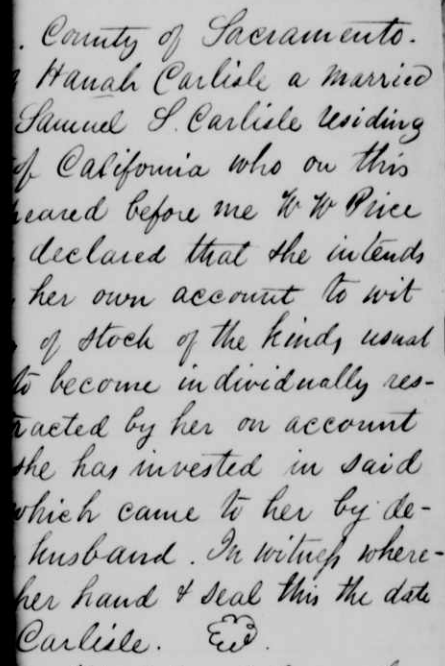 . County of Sacramento.
Hanah Carlisle a married
Samuel S. Carlisle residing
of California who on this
peared before me W W Price
declared that she intends
her own account to wit
of stock of the kinds usual
to become individually res-
racted by her on account
she has invested in said
which came to her by de-
husband. In witness where-
her hand & seal this the date
Carlisle.